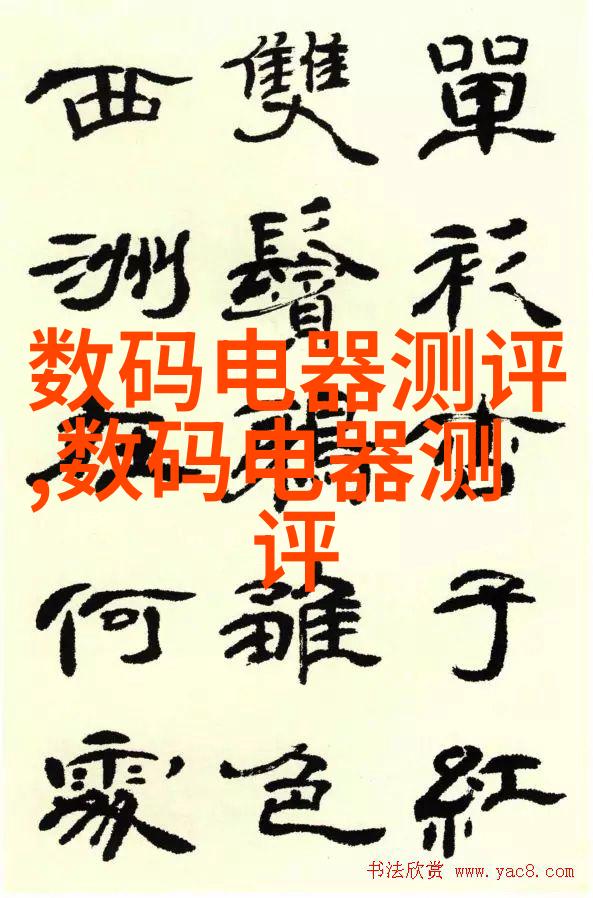 單衫杏子紅
雙鬢鴉雛色
西洲在何處
数码电器测评
,数码电器测
评
书法欣赏 www.yac8.com